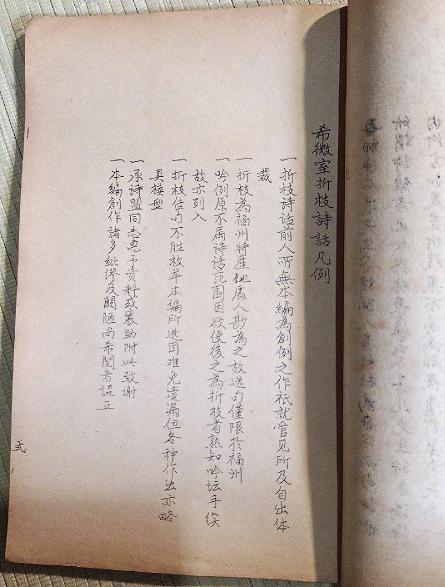 希微室折枝詩話凡例
一折枝詩話前人所無本編為創例之作祇就管見所及自出体
裁
一折枝為福州特産他處人尠為之故选句僅限於福州
一吟例原不属诗话范围因欲使後之為折枝者熟知吟坛手续
故亦列入
一折枝佳句不胜枚举本编所选固难免遗漏但各种作法亦略
具模型
一承诗盟同志惠予资料或襄助附此致谢
一本编創作諸多紕繆及關陋尚希閱者諟正
弍